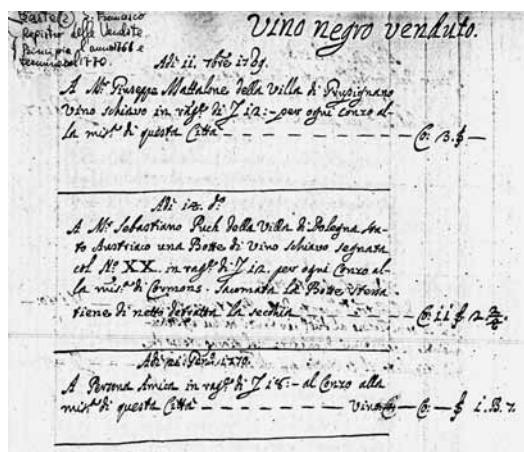 Parte (2) di Francesco
registro delle Vendite
Principia l'anno 1766 e
termina col 1770.
Vino negro venduto.
Adi ii. 7bre 1769.
A Mr. Giuseppe Mattalone della Villa di
Vino schiavo in ragne di Z i2:- per ogni Conzo al-
la misra di questa Città C. 3. —
Adi i2. do.
A Mr. Sebastiano Puch della Villa di Bologna sta-
to Austriaco una Botte di Vino schiavo segnata
col No. XX. in ragne di Z i2. per ogni Conzo al-
la misra di Cormons. Sacomata La Botte stessa
tiene di netto detratta La secchia C. ii 2
Adi 2i. 1770.
A Persona Amica in ragne di Z i8:- al Conzo alla
misra di questa Città Vino C. — i.B.7.